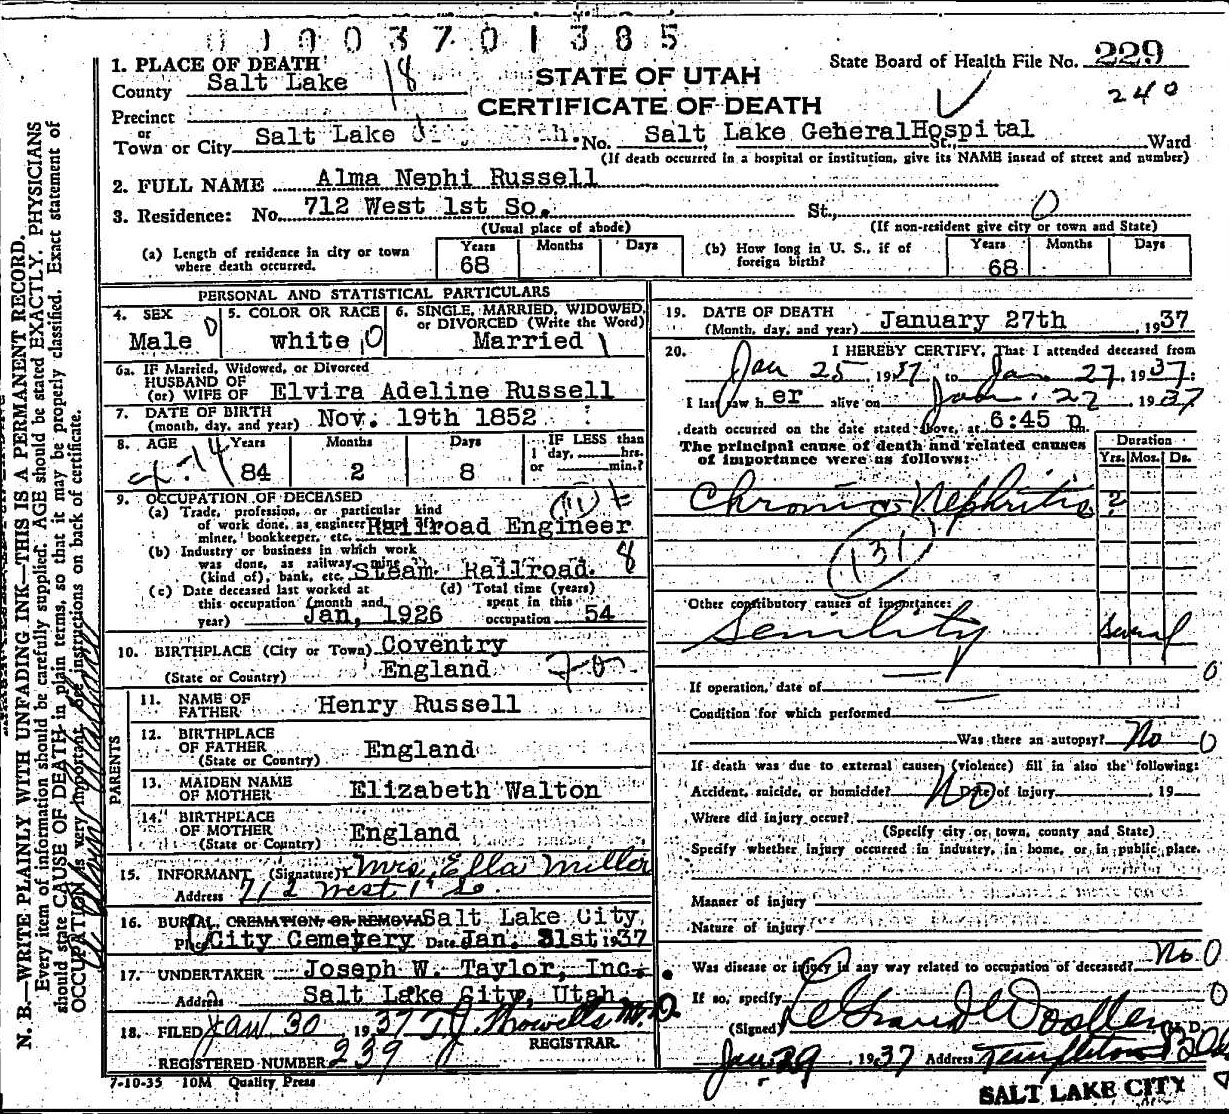 003701385
1. PLACE OF DEATH
County Salt Lake 18
STATE OF UTAH
CERTIFICATE OF DEATH
State Board of Health File No. 229
240
Precinct
or
Town or City Salt Lake No. Salt Lake General Hospital St., Ward
(If death occurred in a hospital or institution, give its NAME insead of street and number)
2. FULL NAME Alma Nephi Russell
3. Residence: No. 712 West 1st So. St., 0
(Usual place of abode) (If non-resident give city or town and State)
(a) Length of residence in city or town where death occurred. Years 68 Months Days
(b) How long in U. S., if of foreign birth? Years 68 Months Days
PERSONAL AND STATISTICAL PARTICULARS
4. SEX Male 0
5. COLOR OR RACE white 0
6. SINGLE, MARRIED, WIDOWED, or DIVORCED (Write the Word) Married 1
6a. IF Married, Widowed, or Divorced
HUSBAND OF
(or) WIFE OF Elvira Adeline Russell
7. DATE OF BIRTH
(month, day, and year) Nov. 19th 1852
8. AGE Years 84 Months 2 Days 8 IF LESS than 1 day, hrs. or min.?
9. OCCUPATION OF DECEASED
(a) Trade, profession, or particular kind
of work done, as engineer
miner, bookkeeper, etc. Railroad Engineer
(b) Industry or business in which work
was done, as railway, mine
(kind of), bank, etc. Steam Railroad. 8
(c) Date deceased last worked at
this occupation (month and
year) Jan, 1926
(d) Total time (years)
spent in this
occupation 54
10. BIRTHPLACE (City or Town) Coventry
(State or Country) England
PARENTS
11. NAME OF FATHER Henry Russell
12. BIRTHPLACE OF FATHER (State or Country) England
13. MAIDEN NAME OF MOTHER Elizabeth Walton
14. BIRTHPLACE OF MOTHER (State or Country) England
15. INFORMANT (Signature) Mrs. Ella Miller
Address 712 West 1st So.
16. BURIAL, CREMATION, OR REMOVAL Salt Lake City,
Place City Cemetery Date Jan. 31st 1937
17. UNDERTAKER Joseph W. Taylor, Inc.
Address Salt Lake City, Utah.
18. FILED Jan 30, 1937 T.J. Howells M.D.
REGISTRAR
REGISTERED NUMBER 239
7-10-35 10M Quality Press
19. DATE OF DEATH
(Month, day, and year) January 27th, 1937
20. I HEREBY CERTIFY, That I attended deceased from
Jan 25 1937 to Jan. 27, 1937.
I last saw h er alive on Jan. 27 1937
death occurred on the date stated above, at 6:45 p m.
The principal cause of death and related causes
of importance were as follows:
Duration
Yrs. Mos. Ds.
Chronic Nephritis ?
131
Other contributory causes of importance:
Senility Several
If operation, date of 0
Condition for which performed
Was there an autopsy? No 0
If death was due to external causes (violence) fill in also the following:
Accident, suicide, or homicide? No Date of injury 19
Where did injury occur?
(Specify city or town, county and State)
Specify whether injury occurred in industry, in home, or in public place.
Manner of injury
Nature of injury
Was disease or injury in any way related to occupation of deceased? No 0
If so, specify 0
(Signed) LeGrand Woolley M. D.
Jan. 29 1937 Address Templeton Bldg
SALT LAKE CITY
N. B.—WRITE PLAINLY WITH UNFADING INK—THIS IS A PERMANENT RECORD.
Every item of information should be carefully supplied. AGE should be stated EXACTLY. PHYSICIANS
should state CAUSE OF DEATH in plain terms, so that it may be properly classified. Exact statement of
OCCUPATION is very important. See instructions on back of certificate.